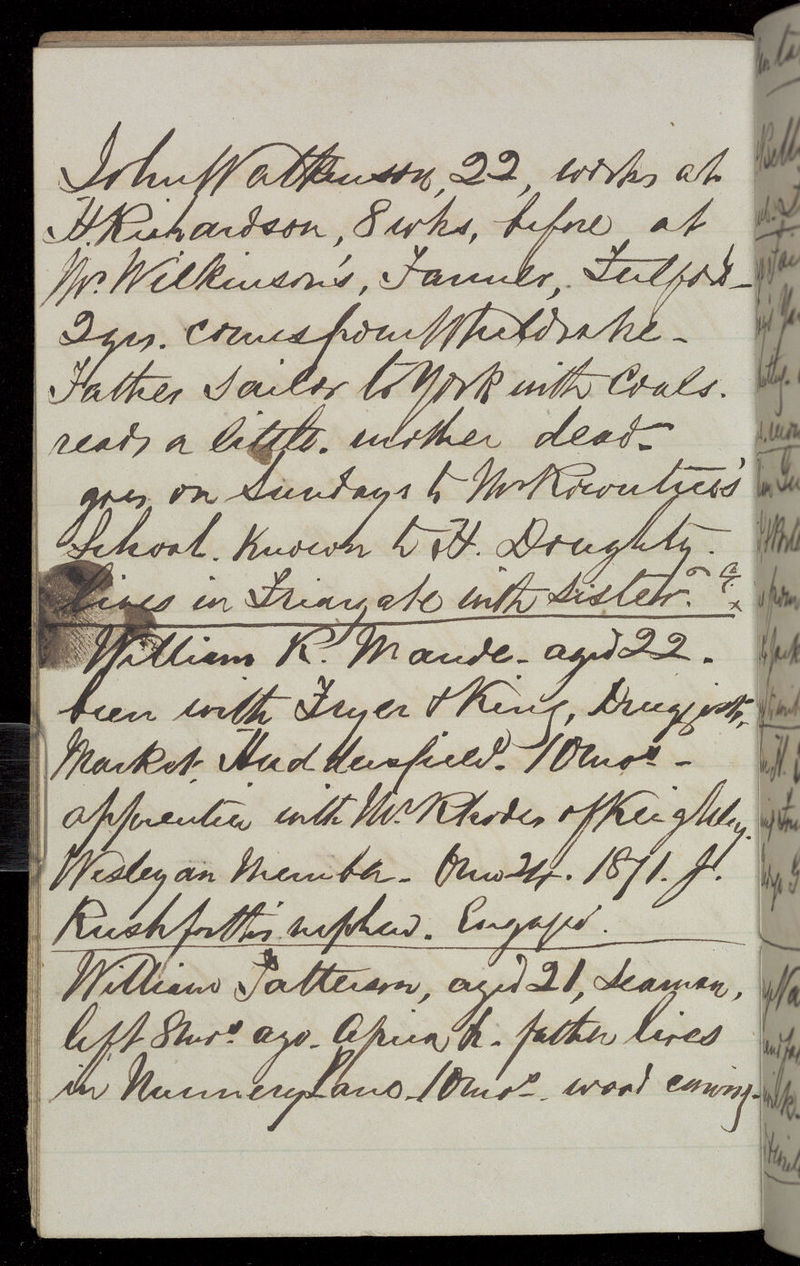 John Watkinson, 22, works at
H. Richardson, 8 wks, before at
Mr. Wilkinson's, Farmer, Fulford -
2 yrs. comes from Wheldrake -
Father Sailor to York with Coals.
reads a little. mother dead -
goes on Sundays to Mr Rowntree's
School. Known to H. Doughty.
lives in Friargate with sister.
William K. Maude - aged 22.
been with Fryer & King, Druggists,
Market Huddersfield. 10 mos -
apprentice with Mr. Rhodes of Keighley.
Wesleyan Member - 24. 1871. J.
Rushforth's nephew. Engaged.
William Patterson, aged 21, seaman,
left 8 mos ago - father lives
in Nunnery Lane - 10 mos - wood carving -